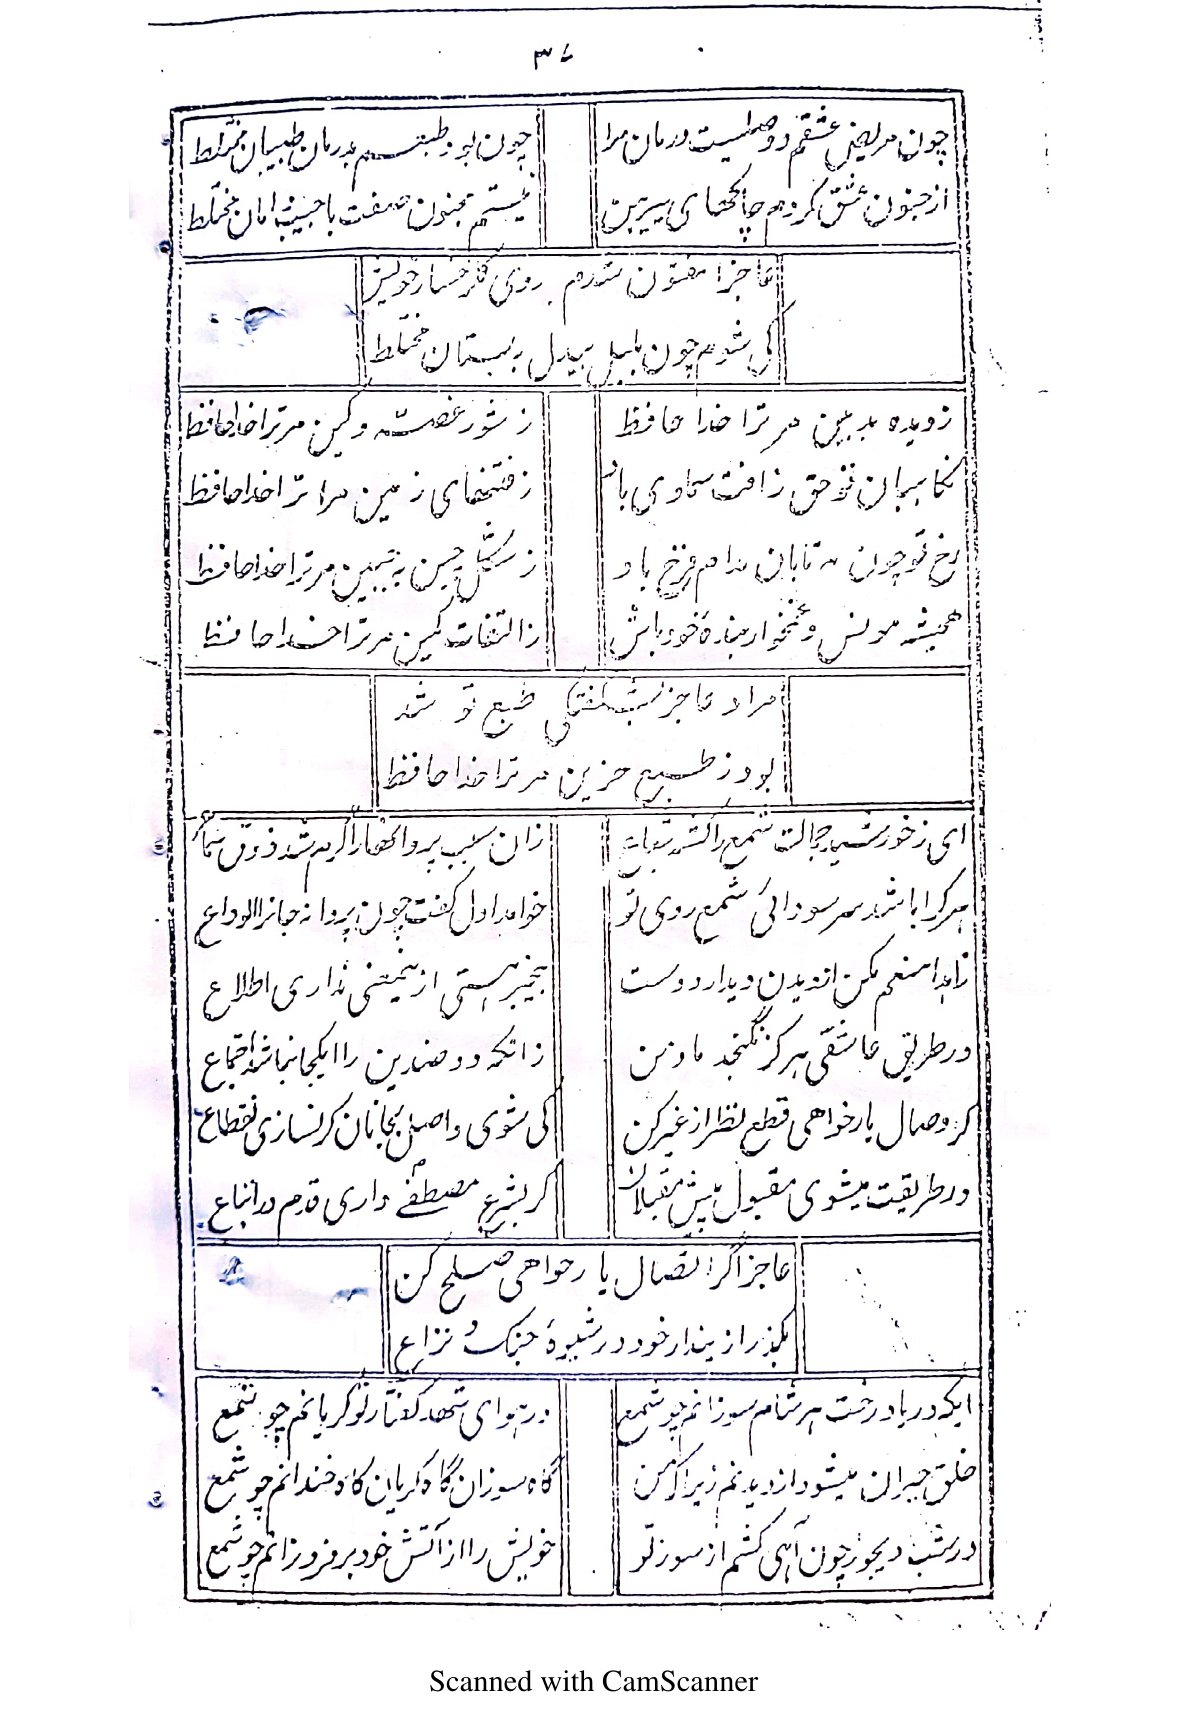 ۳۷
چون مریض عشقم دو وصلست درمان مرا چون بود طبعم بدرمان طبیبان مختلط
از جنون عشق کردم چاکهای پیرهن نیستم مجنون صفت با جیب دامان مختلط
عاجزا مفتون شدم بروی گلرخسار خویش
کی شوم چون بلبل بیدل ببستان مختلط
زدیده بد بین مر ترا خدا حافظ ز شور غصه و کین مر ترا خدا حافظ
نگاهبان تو حق ز آفت سماوی باد ز فتنهای زمین مر ترا خدا حافظ
رخ تو چون مه تابان مدام فرخ باد ز شکل چین به جبین مر ترا خدا حافظ
همیشه مونس و غمخوار بندهٔ خود باش ز التفات کمین مر ترا خدا حافظ
مراد عاجز شگفتگی طبع تو شد
بود ز طبع حزین مر ترا خدا حافظ
ای ز خورشید جمالت شمع را گشته شعاع زان سبب پروانها را گرم شد ذوق سماع
هر کرا باشد بسر سودائی شمع روی تو خواهد اول گفت چون پروانه جانرا الوداع
زاهدا منعم مکن از دیدن دیدار دوست بیخبر هستی ازینمعنی نداری اطلاع
در طریق عاشقی هرگز نگنجد ما و من زانکه دو ضدین را یکجا نباشد اجتماع
گر وصال یار خواهی قطع نظر از غیر کن کی شوی واصل بجانان گر نسازی انقطاع
در طریقت میشوی مقبول پیش مقبلان گر بشرع مصطفےٰ داری قدم در اتباع
عاجزا گر اتصال یار خواهی صلح کن
بگذر از پندار خود در شیوهٔ جنگ و نزاع
ایکه در یاد رخت هر شام سوزانم چو شمع در هوای شهد گفتار تو گریانم چو شمع
خلق حیران میشود از دیدنم زیرا که من گاه سوزان گاه گریان گاه خندانم چو شمع
در شب دیجور چون آهی کشم از سوز تو خویش را از آتش خود بر فروزانم چو شمع
Scanned with CamScanner